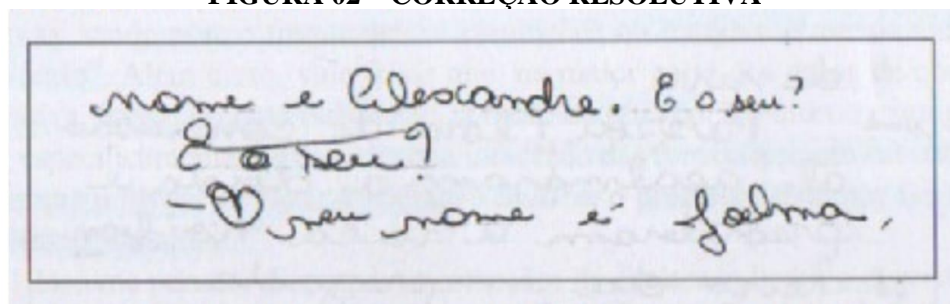 FIGURA 02 – CORREÇÃO RESOLUTIVA
nome e Alexandre. E o seu?
E o seu?
– O meu nome é Joelma.